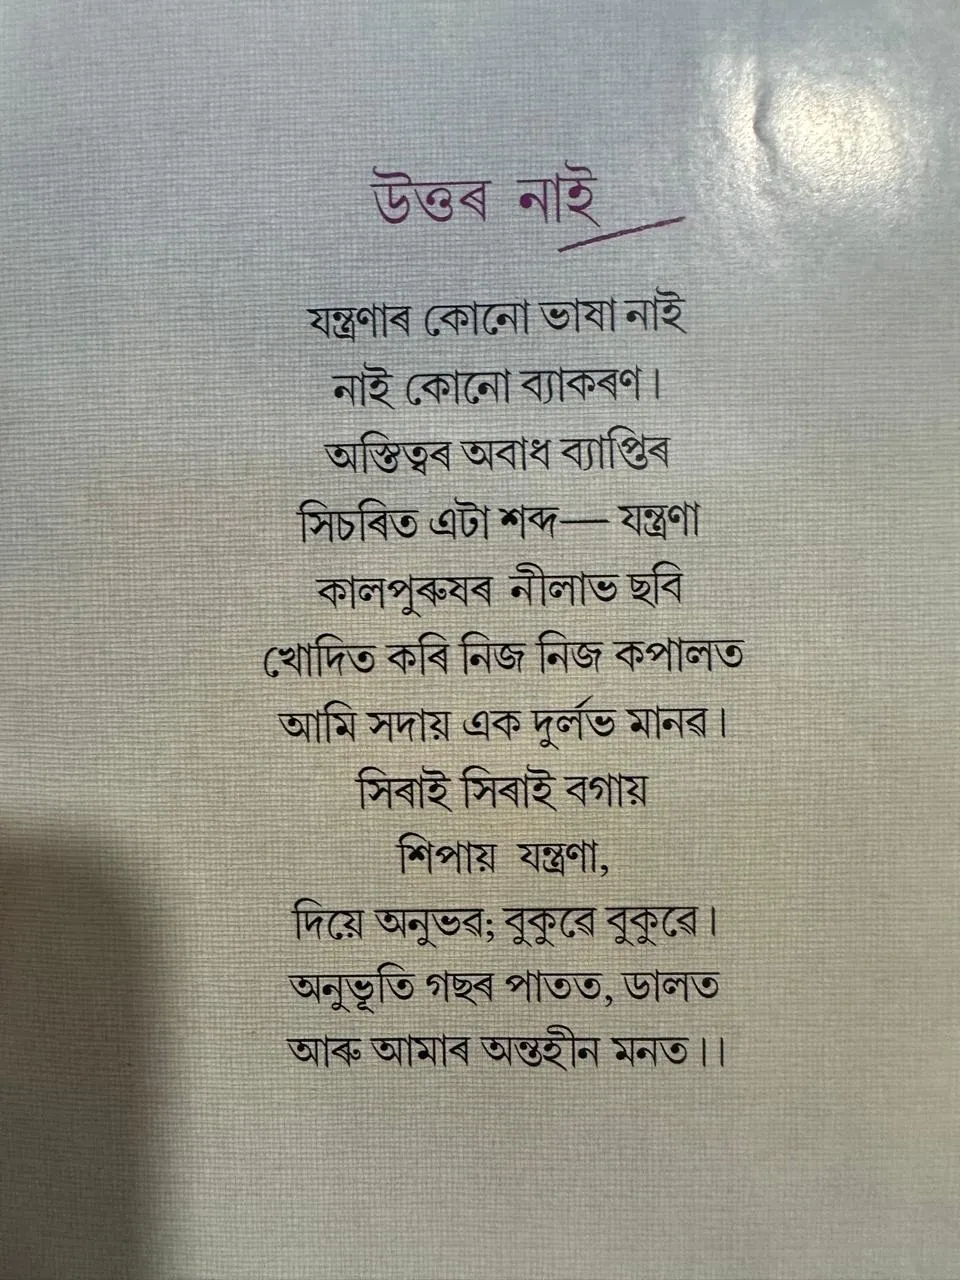 উত্তৰ নাই
যন্ত্ৰণাৰ কোনো ভাষা নাই
নাই কোনো ব্যাকৰণ।
অস্তিত্বৰ অবাধ ব্যাপ্তিৰ
সিচৰিত এটা শব্দ— যন্ত্ৰণা
কালপুৰুষৰ নীলাভ ছবি
খোদিত কৰি নিজ নিজ কপালত
আমি সদায় এক দুৰ্লভ মানৱ।
সিৰাই সিৰাই বগায়
শিপায় যন্ত্ৰণা,
দিয়ে অনুভৱ; বুকুৱে বুকুৱে।
অনুভূতি গছৰ পাতত, ডালত
আৰু আমাৰ অন্তহীন মনত।।